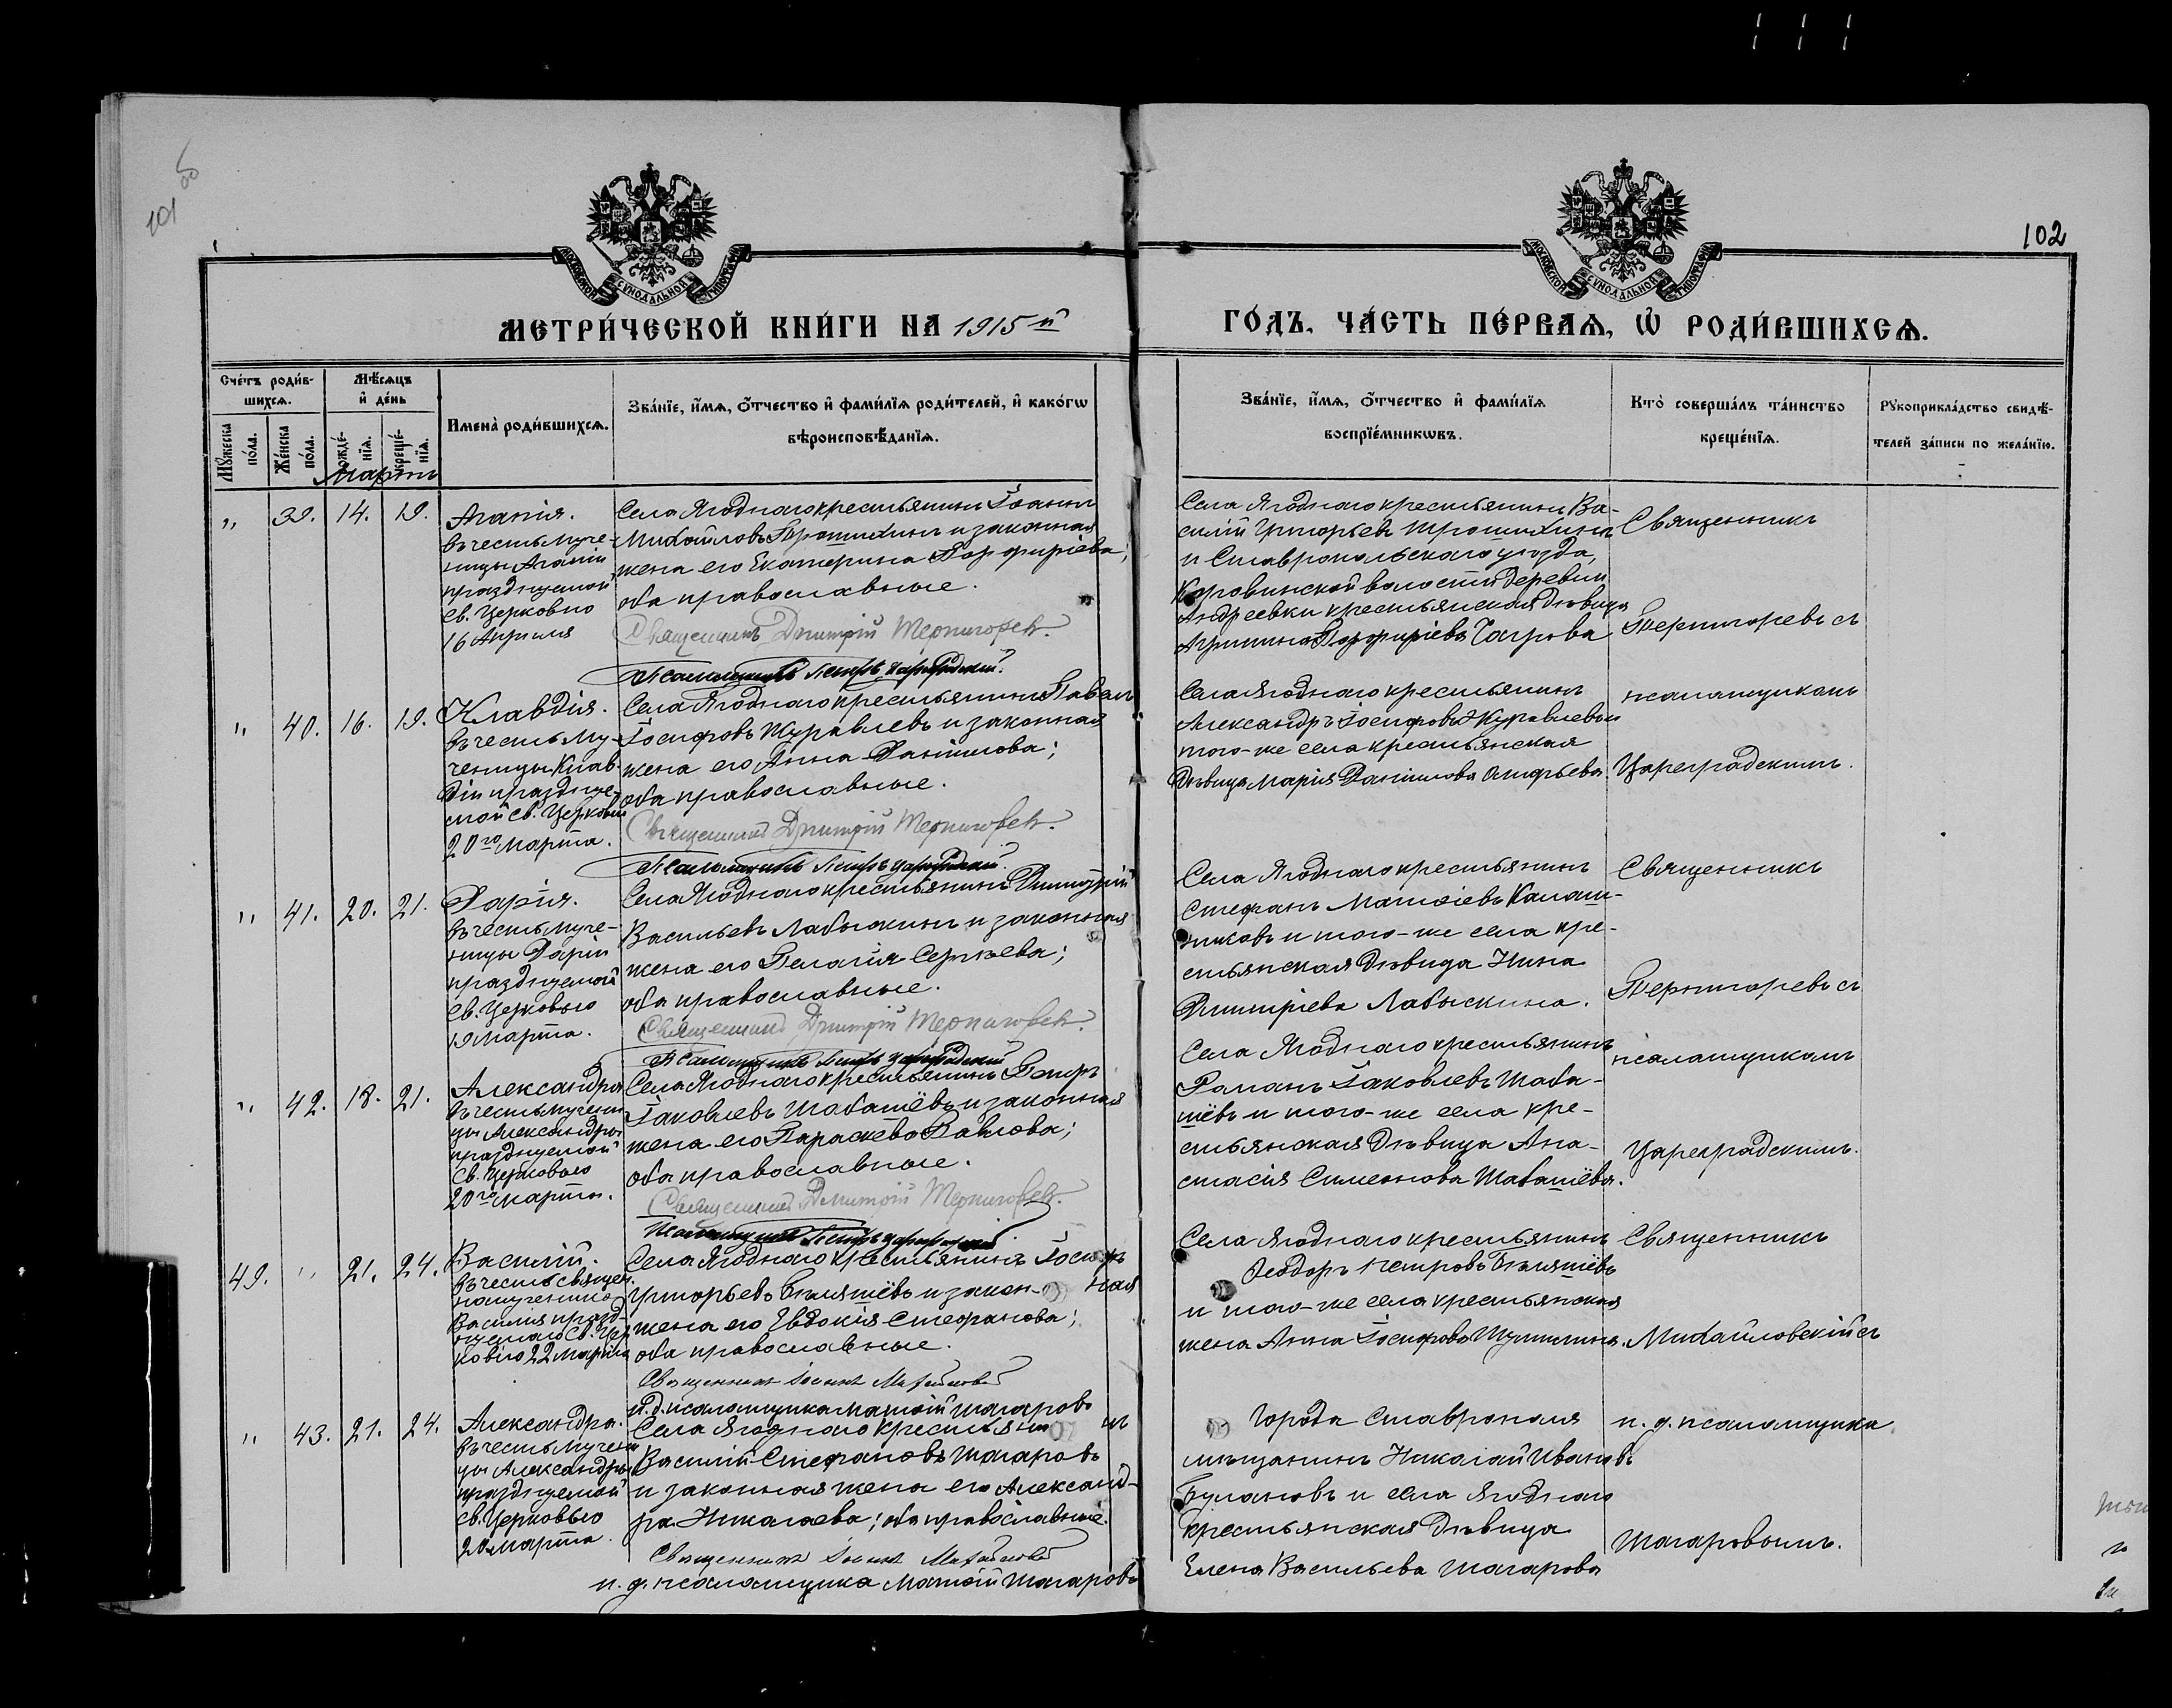 102
МЕТРИ́ЧЕСКОЙ КНИ́ГИ НА 1915 й
ГО́ДЪ, ЧА́СТЬ ПЕ́РВАѦ, Ѡ҆ РОДИ́ВШИХСѦ.
Сче́тъ роди́в-
шихсѧ.
Мꙋ́жеска по́ла.
Же́нска по́ла.
Мѣ́сѧцъ
и҆ де́нь
рожде́-
нїѧ.
креще́-
нїѧ.
Имена̀ роди́вшихсѧ.
Зва́нїе, и҆́мѧ, ѻ҆́тчество и҆ фами́лїѧ роди́телей, и҆ како́гѡ
вѣроисповѣ́данїѧ.
Зва́нїе, и҆́мѧ, ѻ҆́тчество и҆ фами́лїѧ
воспрїе́мникѡвъ.
Кто̀ соверша́лъ та́инство
креще́нїѧ.
Рꙋкоприкла́дство свидѣ́-
телей за́писи по жела́нїю.
Мартъ
„ 39. 14. 19.
Агапія.
въ честь муче-
ницы Агапіи
празднуемой
Св. Церковію
16 Апреля
Села Ягоднаго крестьянинъ Іоаннъ
Михайловъ Трошихинъ и законная
жена его Екатерина Порфиріева;
оба православные.
Священникъ Дмитрій Терниговевъ.
Псаломщикъ Петръ Цареградскій.
Села Ягоднаго крестьянинъ Ва-
силій Григорьевъ Трошихинъ
и Ставропольскаго уѣзда,
Коровинской волости деревни
Андреевки крестьянская дѣвица
Агриппина Порфиріева
Священникъ
съ
„ 40. 16. 19.
Клавдія.
въ честь Му-
ченицы Клав-
діи праздну-
емой Св. Церковію
20го Марта.
Села Ягоднаго крестьянинъ Павелъ
Іосифовъ Журавлевъ и законная
жена его Анна Даніилова;
оба православные.
Священникъ Дмитрій Терниговевъ.
Псаломщикъ Петръ Цареградскій.
Села Ягоднаго крестьянинъ
Александръ Іосифовъ Журавлевъ и
того-же села крестьянская
дѣвица Марія Даніилова
псаломщикомъ
Цареградскимъ.
„ 41. 20. 21.
Дарія.
въ честь муче-
ницы Даріи
празднуемой
Св. Церковью
19 Марта.
Села Ягоднаго крестьянинъ Димитрій
Васильевъ Лабыскинъ и законная
жена его Пелагія Сергѣева;
оба православные.
Священникъ Дмитрій Терниговевъ.
Псаломщикъ Петръ Цареградскій
Села Ягоднаго крестьянинъ
Стефанъ Матвіевъ Калаш-
никовъ и того-же села кре-
стьянская дѣвица Нина
Димитріева Лабыскина.
Священникъ
съ
„ 42. 18. 21.
Александра
въ честь мучени-
цы Александры
празднуемой
Св. Церковью
20го Марта.
Села Ягоднаго крестьянинъ Петръ
Іаковлевъ Шабашёвъ и законная
жена его Параскева Павлова;
оба православные.
Священникъ Дмитрій Терниговевъ.
Псаломщикъ Петръ Цареградскій
Села Ягоднаго крестьянинъ
Романъ Іаковлевъ Шаба-
шёвъ и того-же села кре-
стьянская дѣвица Ана-
стасія Симеонова Шабашёва.
псаломщикомъ
Цареградскимъ.
49. „ 21. 24.
Василій.
въ честь священ-
номученика
Василія празд-
нуемаго Св. Цер-
ковію 22 Марта
Села Ягоднаго крестьянинъ Іосифъ
Григорьевъ Бѣляшёвъ и закон- ная
жена его Евдокія Стефанова;
оба православные.
Священникъ Іоаннъ Михайловскій
и. д. псаломщика Матвій Шагаровъ
Села Ягоднаго крестьянинъ
Ѳеодоръ Петровъ Бѣляшёвъ
и того-же села крестьянская
жена Анна Іосифова
Священникъ
Михайловскій съ
„ 43. 21. 24.
Александра.
въ честь Мучени-
цы Александры
празднуемой
Св. Церковью
20 Марта.
Села Ягоднаго крестьянинъ
Василій Стефановъ Шагаровъ
и законная жена его Александ-
ра Николаева; оба православные.
Священникъ Іоаннъ Михайловскій
и. д. псаломщика Матвій Шагаровъ
Города Ставрополя
мѣщанинъ Николай Ивановъ
Булановъ и села Ягоднаго
крестьянская дѣвица
Елена Васильева Шагарова
и. д. псаломщика
Шагаровымъ.